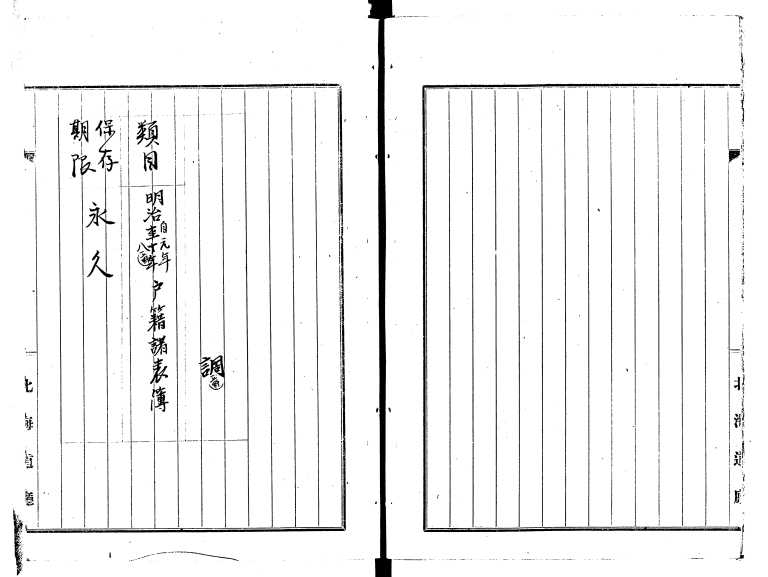 調
類目
明治 自元年 至十年 戸籍諸表簿
保存
期限
永久
北海道廳
北海道廳